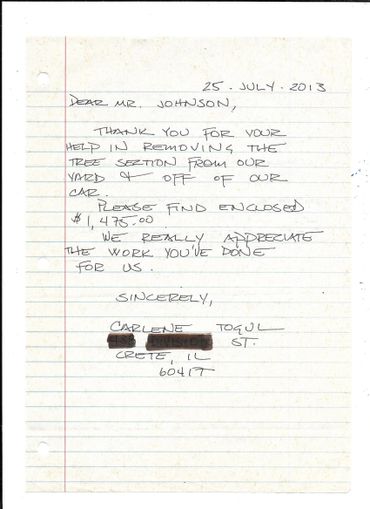 25 · JULY · 2013
DEAR MR. JOHNSON,
THANK YOU FOR YOUR
HELP IN REMOVING THE
TREE SECTION FROM OUR
YARD & OFF OF OUR
CAR.
PLEASE FIND ENCLOSED
$1,475.00
WE REALLY APPRECIATE
THE WORK YOU'VE DONE
FOR US.
SINCERELY,
CARLENE TOGUL
ST.
CRETE, IL
60417